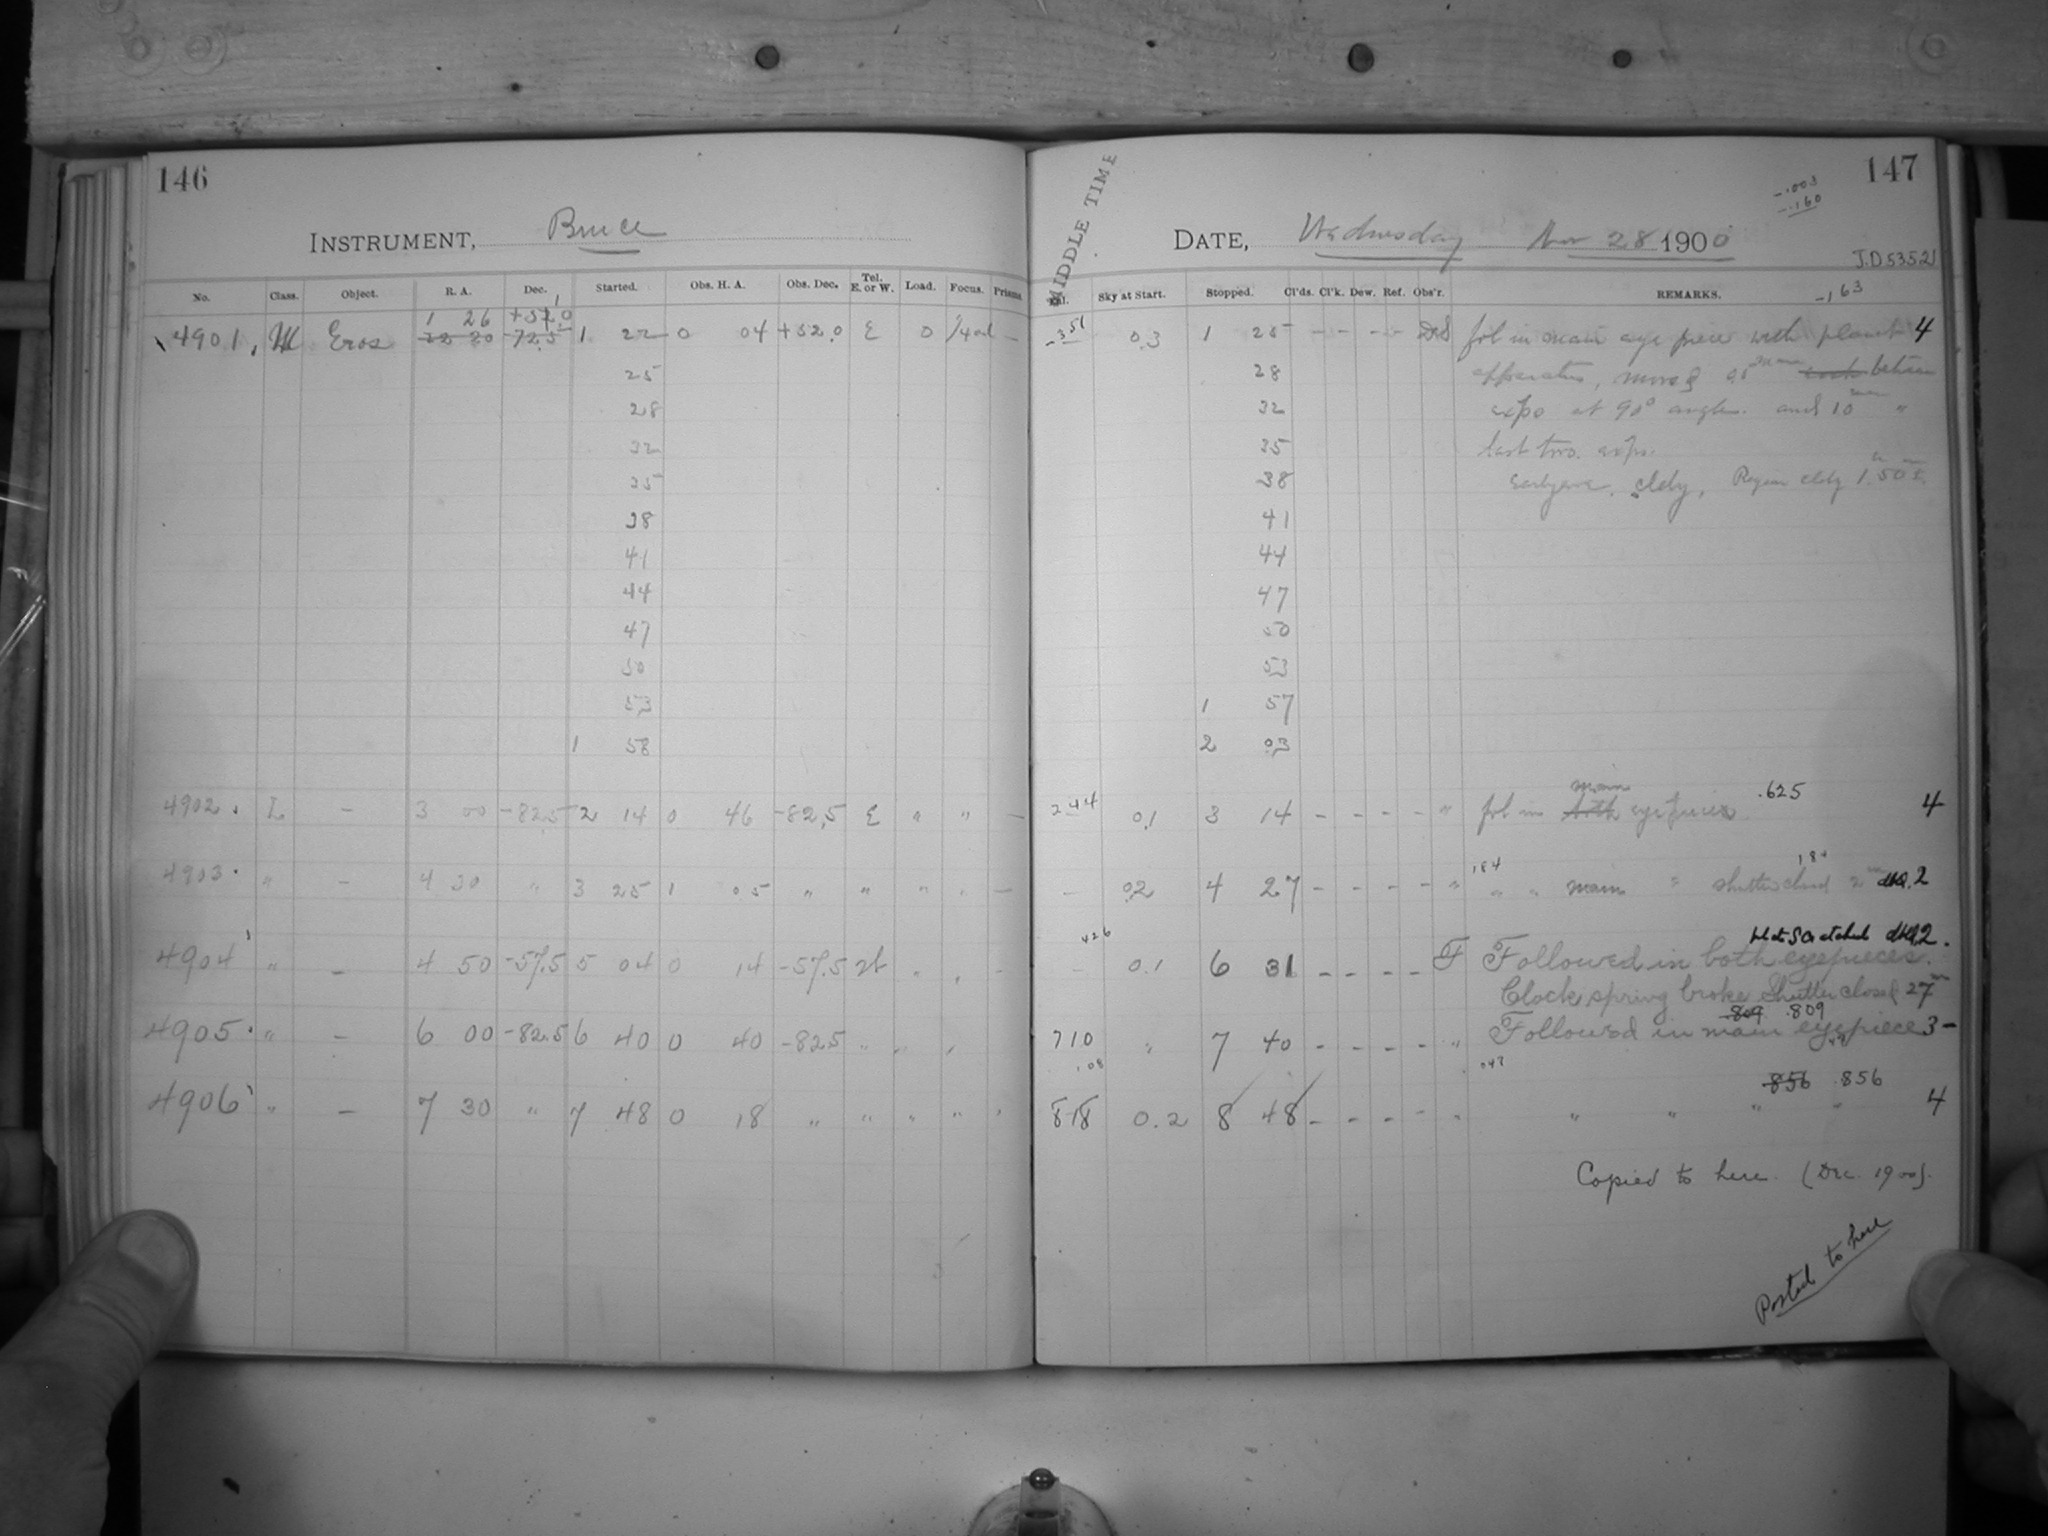 146
INSTRUMENT, Bruce
No. Class. Object. R. A. Dec. Started. Obs. H. A. Obs. Dec. Tel. E. or W. Load. Focus. Prisms
1 26 +52.0
4901. Eros 22 20 -72.5 1 22 0 04 +52.0 E 0 —
25
28
32
35
38
41
44
47
50
53
1 58
4902. L – 3 00 -82.5 2 14 0 46 -82.5 E " " —
4903. " – 4 30 " 3 25 1 05 " " " " —
4904 " – 4 50 -57.5 5 04 0 14 -57.5 W " " -
4905. " – 6 00 -82.5 6 40 0 40 -82.5 " " "
4906 " – 7 30 " 7 48 0 18 " " " " "
MIDDLE TIME
147
-.003
-.160
DATE, Wednesday Nov 28 1900
J.D 53521
Sky at Start. Stopped. Cl'ds. Cl'k. Dew. Ref. Obs'r. REMARKS.
-.163
-.351 0.3 1 25 - - - - fol in main eye piece with planet 4
28 apparatus, moved between
32 expo at 90° angle. and 10 "
35 last two. exps.
38 cldy,
41
44
47
50
53
1 57
2 03
main .625
244 0.1 3 14 - - - - " fol in both eyepieces 4
.184 184
- 0.2 4 27 - - - - " " " main " shutter closed 2m 2
.426 Plate Scratched 2.
- 0.1 6 31 - - - - F Followed in both eyepieces.
Clock spring broke Shutter closed 27m
.809 .809
710 " 7 40 - - - - " Followed in main eyepiece 3-
.08 .047
.856 .856
818 0.2 8 48 - - - - " " " " " 4
Copied to here. (Dec. 1900).
Posted to here